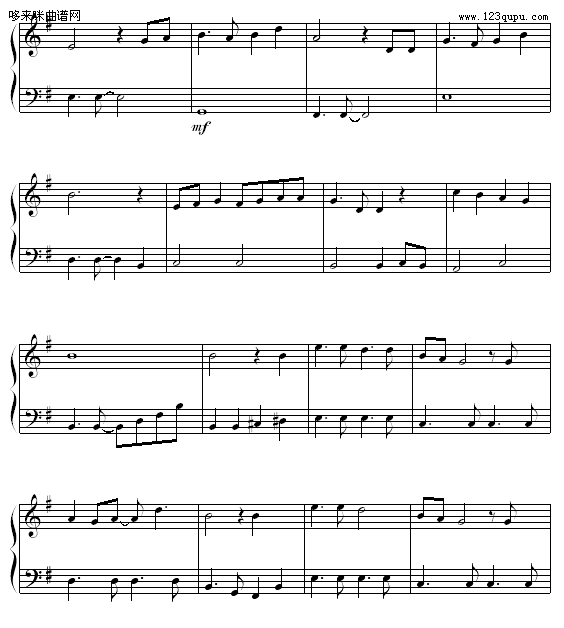 哆来咪曲谱网
www.123qupu.com
mf